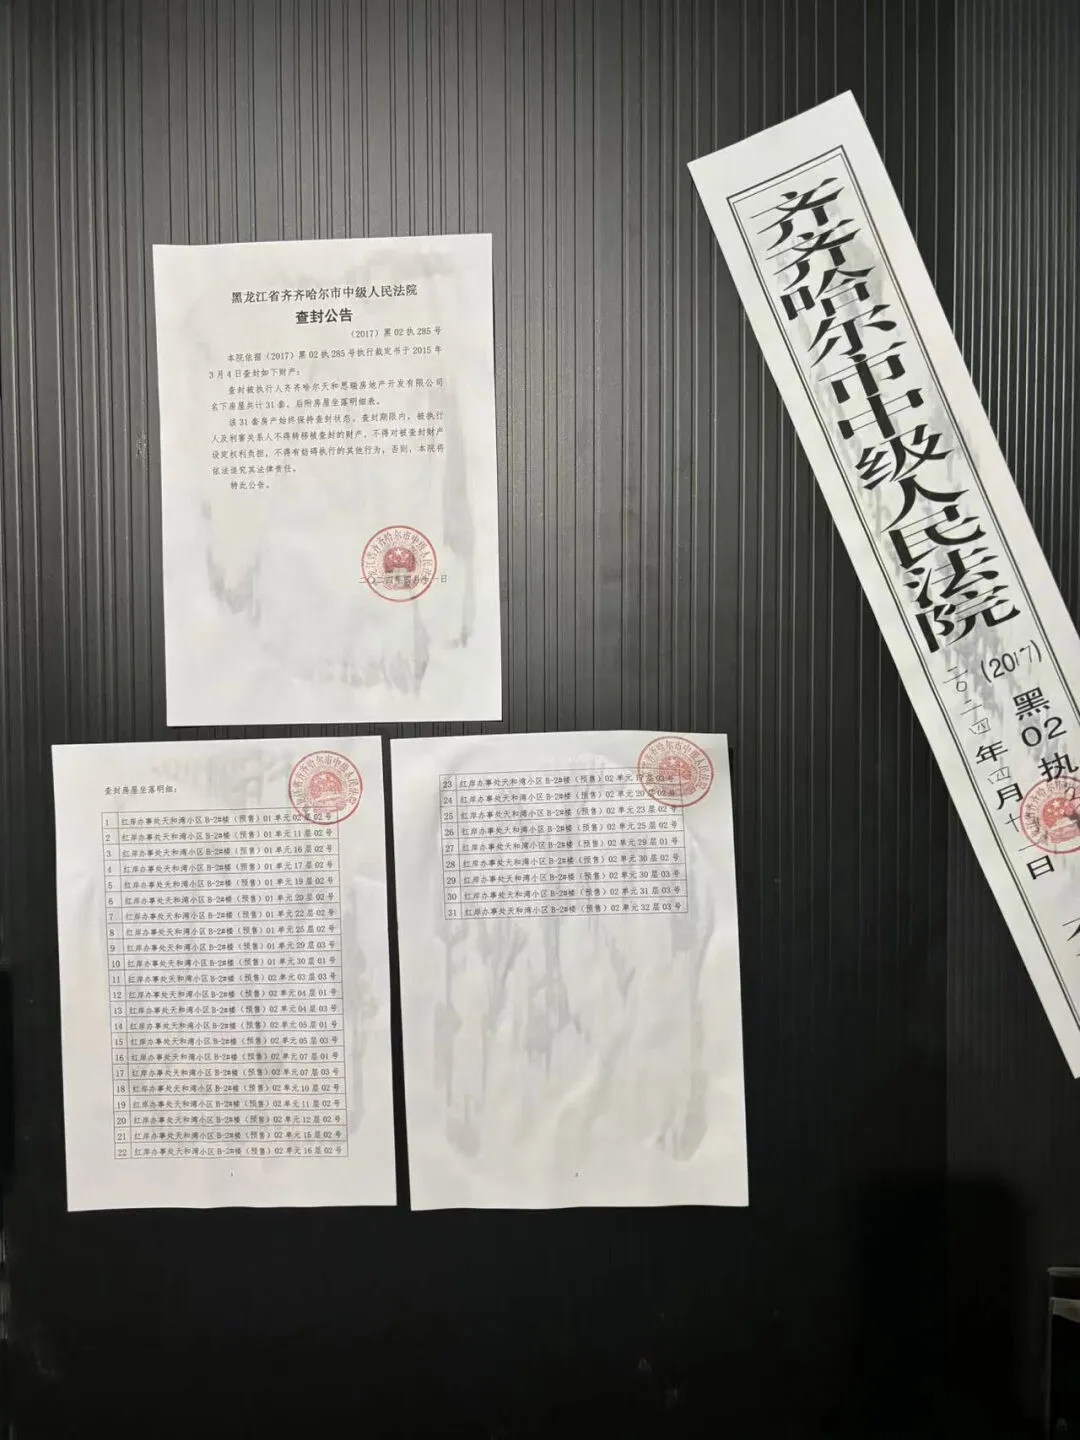 黑龙江省齐齐哈尔市中级人民法院
查封公告
（2017）黑 02 执 285 号
本院依据（2017）黑 02 执 285 号执行裁定书于 2015 年
3 月 4 日查封如下财产：
查封被执行人齐齐哈尔天和恩瑞房地产开发有限公司
名下房屋共计 31 套，后附房屋坐落明细表。
该 31 套房产始终保持查封状态，查封期限内，被执行
人及利害关系人不得转移被查封的财产，不得对被查封财产
设定权利负担，不得有妨碍执行的其他行为，否则，本院将
依法追究其法律责任。
特此公告。
二〇二四年四月十一日
查封房屋坐落明细：
1 红岸办事处天和湾小区 B-2#楼（预售）01 单元 02 层 02 号
2 红岸办事处天和湾小区 B-2#楼（预售）01 单元 11 层 02 号
3 红岸办事处天和湾小区 B-2#楼（预售）01 单元 16 层 02 号
4 红岸办事处天和湾小区 B-2#楼（预售）01 单元 17 层 02 号
5 红岸办事处天和湾小区 B-2#楼（预售）01 单元 19 层 02 号
6 红岸办事处天和湾小区 B-2#楼（预售）01 单元 20 层 02 号
7 红岸办事处天和湾小区 B-2#楼（预售）01 单元 22 层 02 号
8 红岸办事处天和湾小区 B-2#楼（预售）01 单元 25 层 02 号
9 红岸办事处天和湾小区 B-2#楼（预售）01 单元 29 层 03 号
10 红岸办事处天和湾小区 B-2#楼（预售）01 单元 30 层 01 号
11 红岸办事处天和湾小区 B-2#楼（预售）02 单元 03 层 03 号
12 红岸办事处天和湾小区 B-2#楼（预售）02 单元 04 层 01 号
13 红岸办事处天和湾小区 B-2#楼（预售）02 单元 04 层 03 号
14 红岸办事处天和湾小区 B-2#楼（预售）02 单元 05 层 01 号
15 红岸办事处天和湾小区 B-2#楼（预售）02 单元 05 层 03 号
16 红岸办事处天和湾小区 B-2#楼（预售）02 单元 07 层 01 号
17 红岸办事处天和湾小区 B-2#楼（预售）02 单元 07 层 03 号
18 红岸办事处天和湾小区 B-2#楼（预售）02 单元 10 层 02 号
19 红岸办事处天和湾小区 B-2#楼（预售）02 单元 11 层 02 号
20 红岸办事处天和湾小区 B-2#楼（预售）02 单元 12 层 02 号
21 红岸办事处天和湾小区 B-2#楼（预售）02 单元 15 层 02 号
22 红岸办事处天和湾小区 B-2#楼（预售）02 单元 16 层 02 号
1
23 红岸办事处天和湾小区 B-2#楼（预售）02 单元 17 层 02 号
24 红岸办事处天和湾小区 B-2#楼（预售）02 单元 20 层 02 号
25 红岸办事处天和湾小区 B-2#楼（预售）02 单元 23 层 02 号
26 红岸办事处天和湾小区 B-2#楼（预售）02 单元 25 层 02 号
27 红岸办事处天和湾小区 B-2#楼（预售）02 单元 29 层 01 号
28 红岸办事处天和湾小区 B-2#楼（预售）02 单元 30 层 02 号
29 红岸办事处天和湾小区 B-2#楼（预售）02 单元 30 层 03 号
30 红岸办事处天和湾小区 B-2#楼（预售）02 单元 31 层 03 号
31 红岸办事处天和湾小区 B-2#楼（预售）02 单元 32 层 03 号
2
齐齐哈尔市中级人民法院
（2017）黑02执
二〇二四年四月十一日